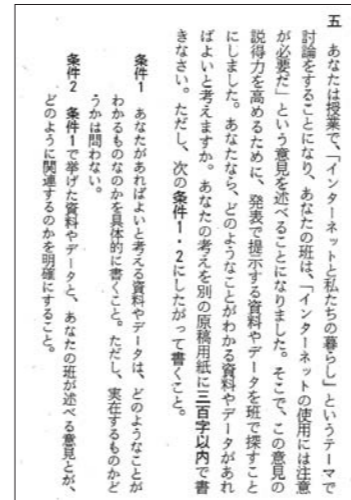 五　あなたは授業で、「インターネットと私たちの暮らし」というテーマで
討論をすることになり、あなたの班は、「インターネットの使用には注意
が必要だ」という意見を述べることになりました。そこで、この意見の
説得力を高めるために、発表で提示する資料やデータを班で探すこと
にしました。あなたなら、どのようなことがわかる資料やデータがあれ
ばよいと考えますか。あなたの考えを別の原稿用紙に三百字以内で書
きなさい。ただし、次の条件1・2にしたがって書くこと。
条件1　あなたがあればよいと考える資料やデータは、どのようなことが
わかるものなのかを具体的に書くこと。ただし、実在するものかど
うかは問わない。
条件2　条件1で挙げた資料やデータと、あなたの班が述べる意見とが、
どのように関連するのかを明確にすること。